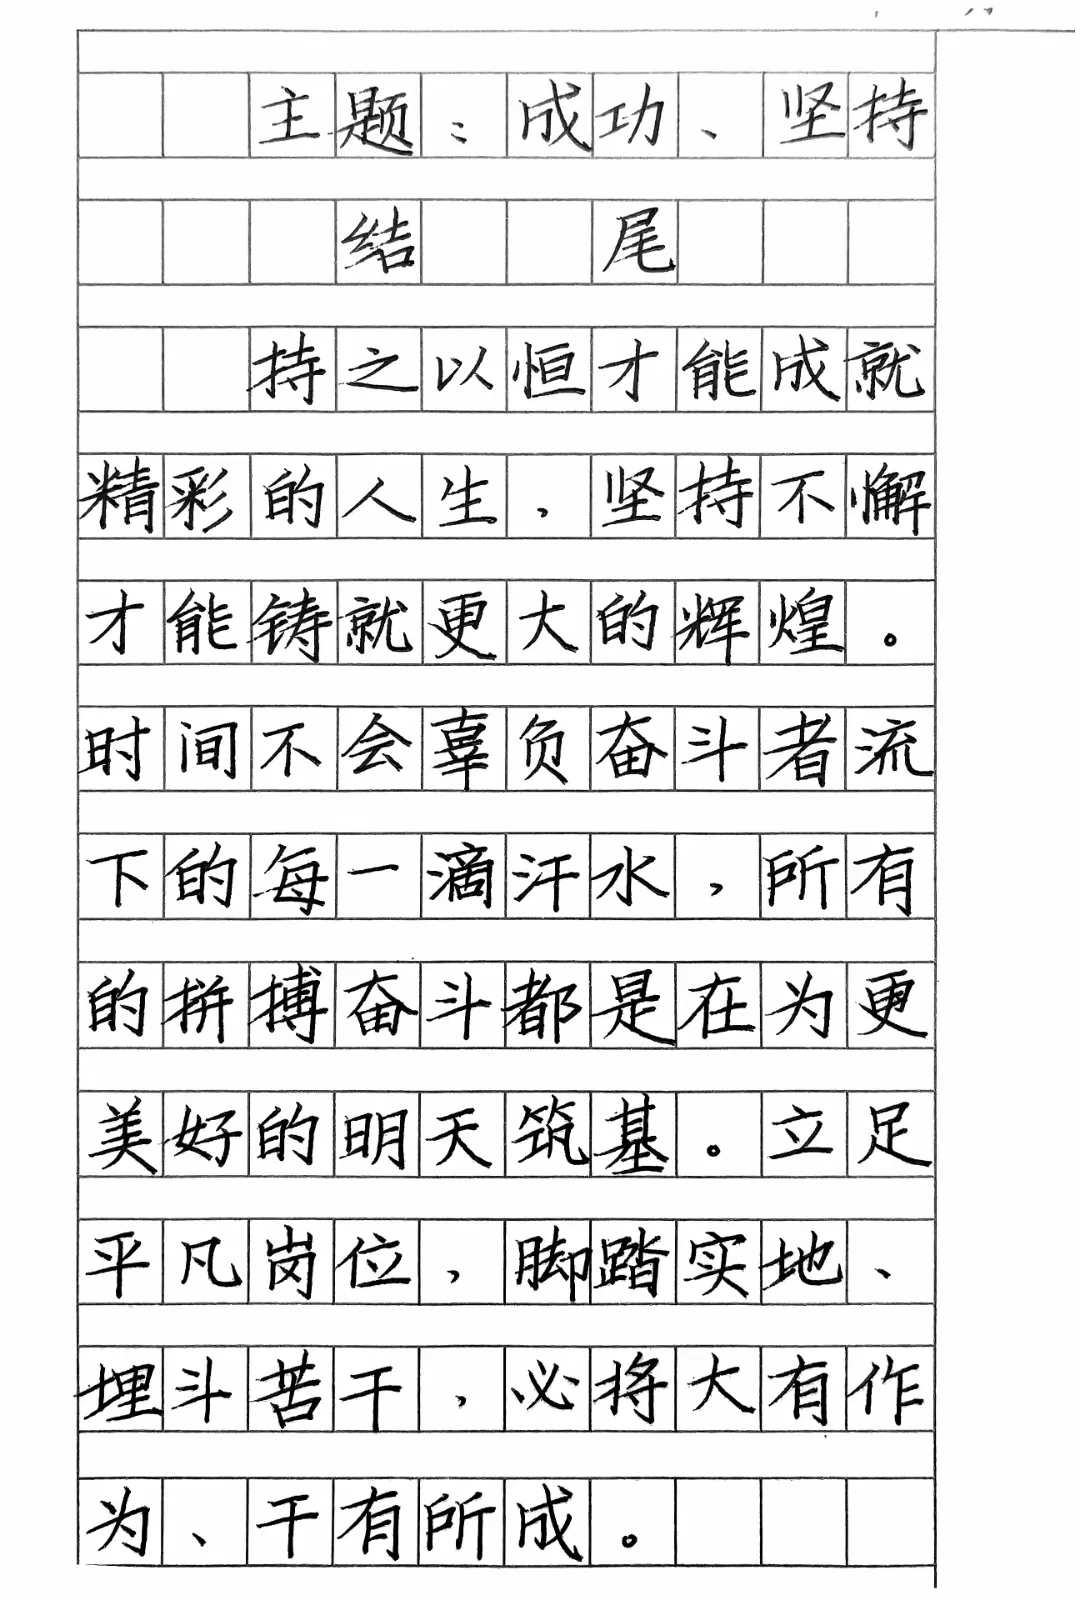 主题：成功、坚持
结尾
持之以恒才能成就
精彩的人生，坚持不懈
才能铸就更大的辉煌。
时间不会辜负奋斗者流
下的每一滴汗水，所有
的拼搏奋斗都是在为更
美好的明天筑基。立足
平凡岗位，脚踏实地、
埋斗苦干，必将大有作
为、干有所成。